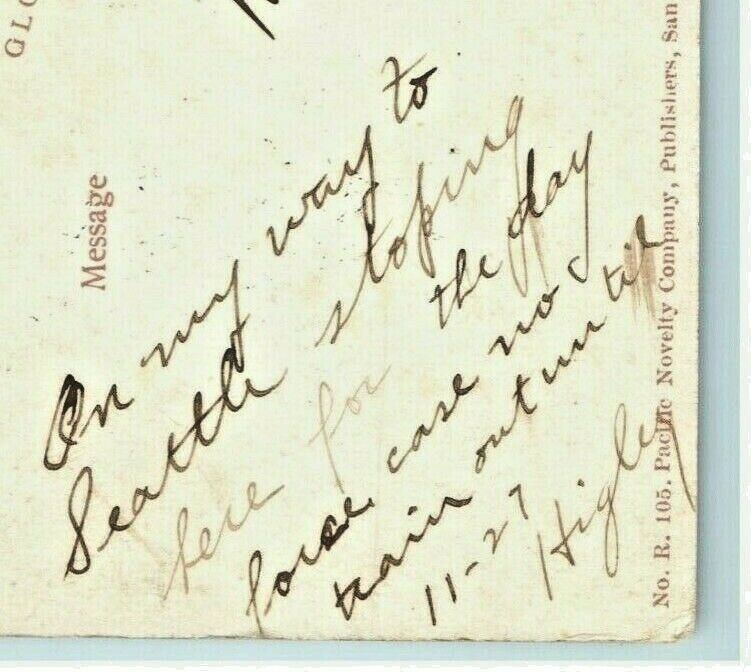 GLO
Message
On my way to
Seattle stoping
here for the day
force case no
train out un til
11-27
Higley
No. R. 105. Pacific Novelty Company, Publishers, San